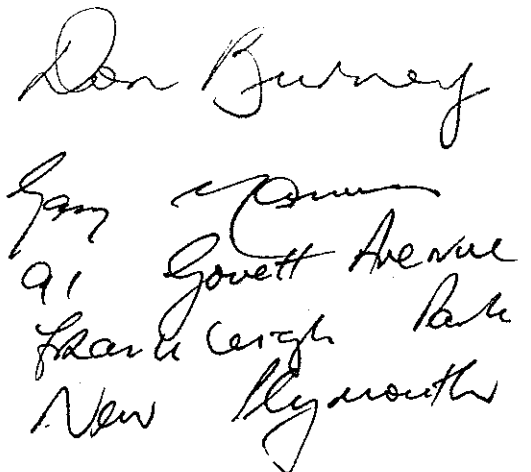 Don Burney
Gary
91 Govett Avenue
Frankleigh Park
New Plymouth